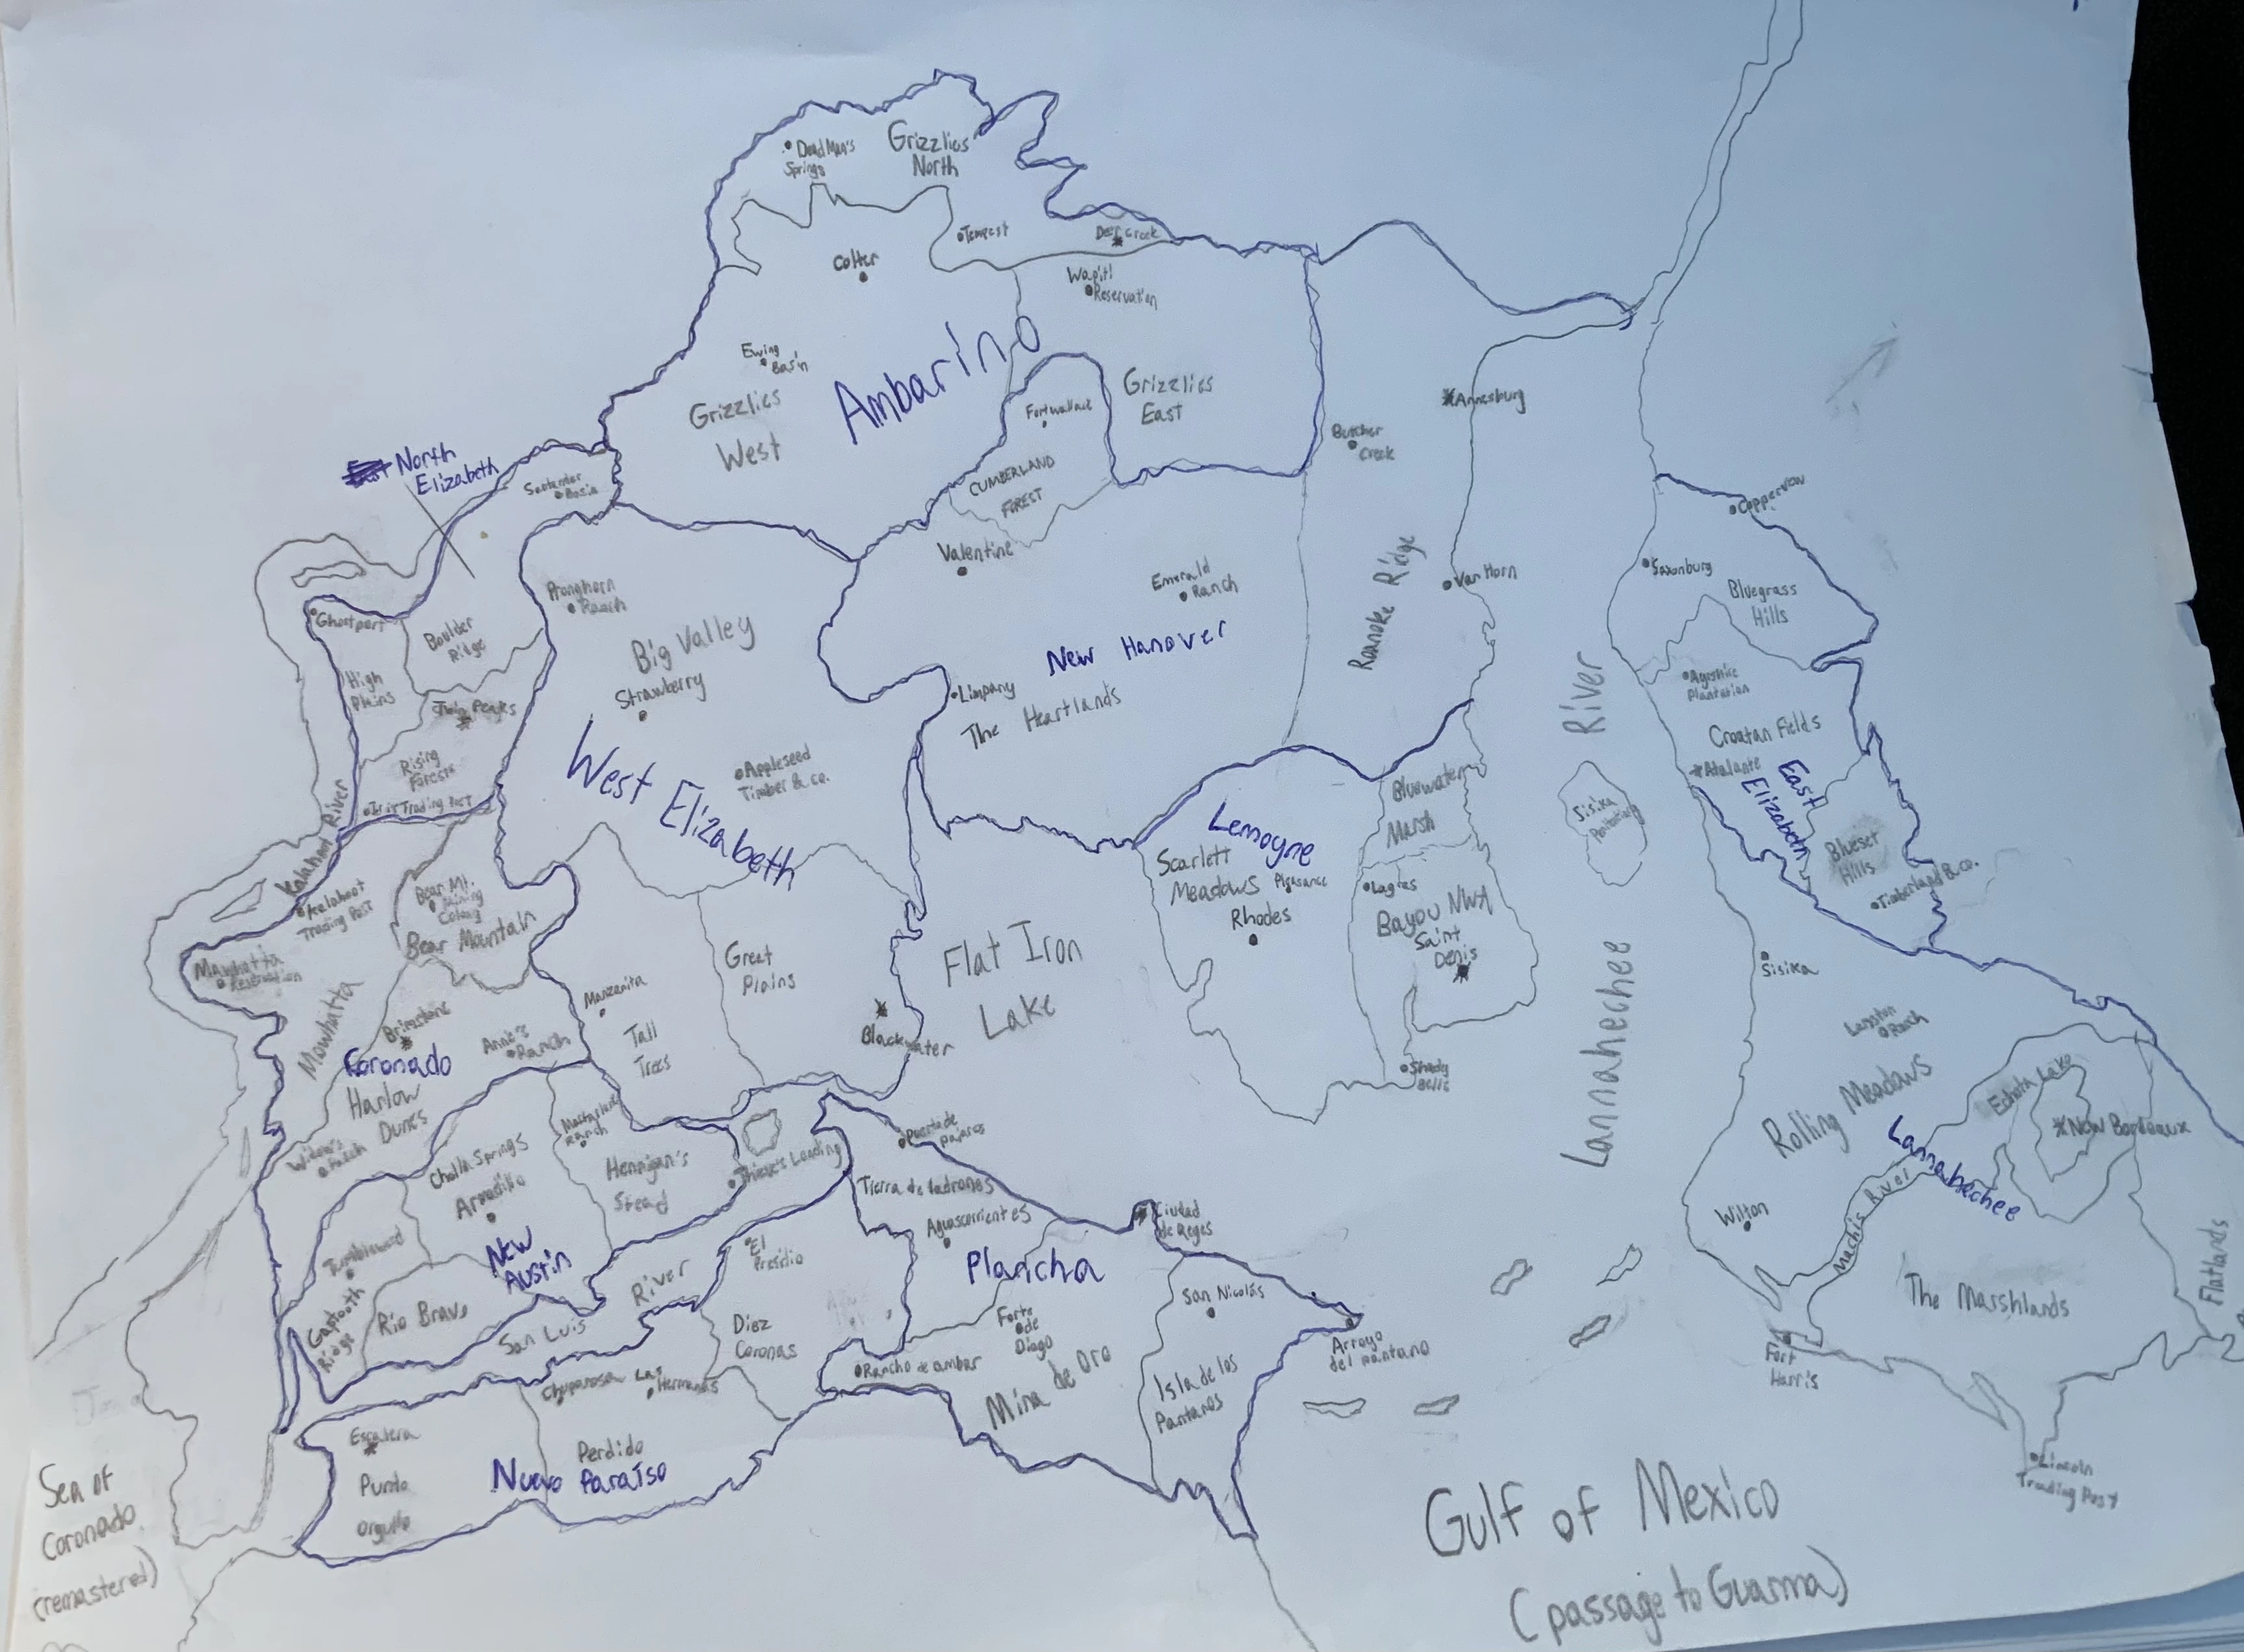 Dead Man's
Springs
Grizzlies
North
Tempest
Deer Creek
Colter
Wapiti
Reservation
Ewing
Basin
Ambarino
Grizzlies
West
Grizzlies
East
Fort Wallace
CUMBERLAND
FOREST
Annesburg
Butcher
Creek
North
Elizabeth
Basin
Coppervow
Valentine
Emerald
Ranch
Van Horn
Saxonburg
Bluegrass
Hills
Pronghorn
Ranch
Ghostport
Boulder
Ridge
Big Valley
Strawberry
New Hanover
Roanoke Ridge
High
Plains
Twin Peaks
Limpany
The Heartlands
Plantation
Croatan Fields
Rising
Forests
Trading Post
West Elizabeth
Appleseed
Timber & co.
Bluewater
Marsh
Sisika
Atalante
East
Elizabeth
Lemoyne
Scarlett
Meadows
Pleasance
Rhodes
Lagras
Bayou NWA
Saint
Denis
Hills
Timberland & co.
River
Trading Post
Bear Mt.
Mining
Colony
Bear Mountain
Great
Plains
Flat Iron
Lake
Lannahechee River
Sisika
Reservation
Manzanita
Tall
Trees
Blackwater
Brimstone
Annie's
Ranch
Coronado
Harlow
Dunes
Shady
Belle
Ranch
Rolling Meadows
New Bordeaux
Lannahechee
Cholla Springs
Armadillo
Ranch
Hennigan's
Stead
Thieve's Landing
Puerta de
pajaros
Tierra de ladrones
Aguascorrientes
Ciudad
de Reyes
Wilton
Machis River
The Marshlands
Flatlands
Tumbleweed
New
Austin
Gaptooth
Ridge
Rio Bravo
San Luis
River
El
Presidio
Diez
Coronas
Plancha
San Nicolás
Forte
de
Diego
Rancho de ambar
Mina de Oro
Isla de los
Pantanos
Arroyo
del pantano
Fort
Harris
Chuparosa
Las
Hermanas
Escalera
Punto
orgullo
Perdido
Nuevo Paraíso
Lincoln
Trading Post
Sea of
Coronado
(remastered)
Gulf of Mexico
(passage to Guarma)